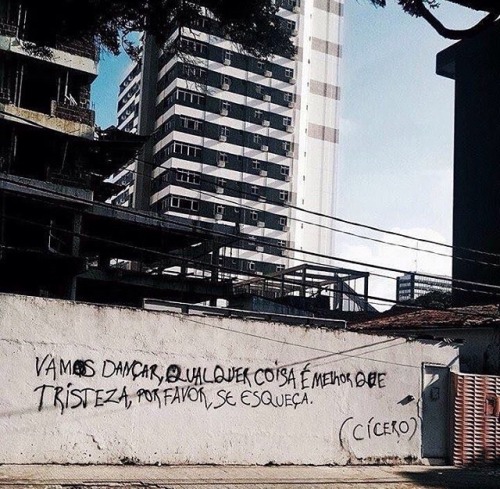 VAMOS DANÇAR, QUALQUER COISA É MELHOR QUE
TRISTEZA, POR FAVOR, SE ESQUEÇA.
(CÍCERO)